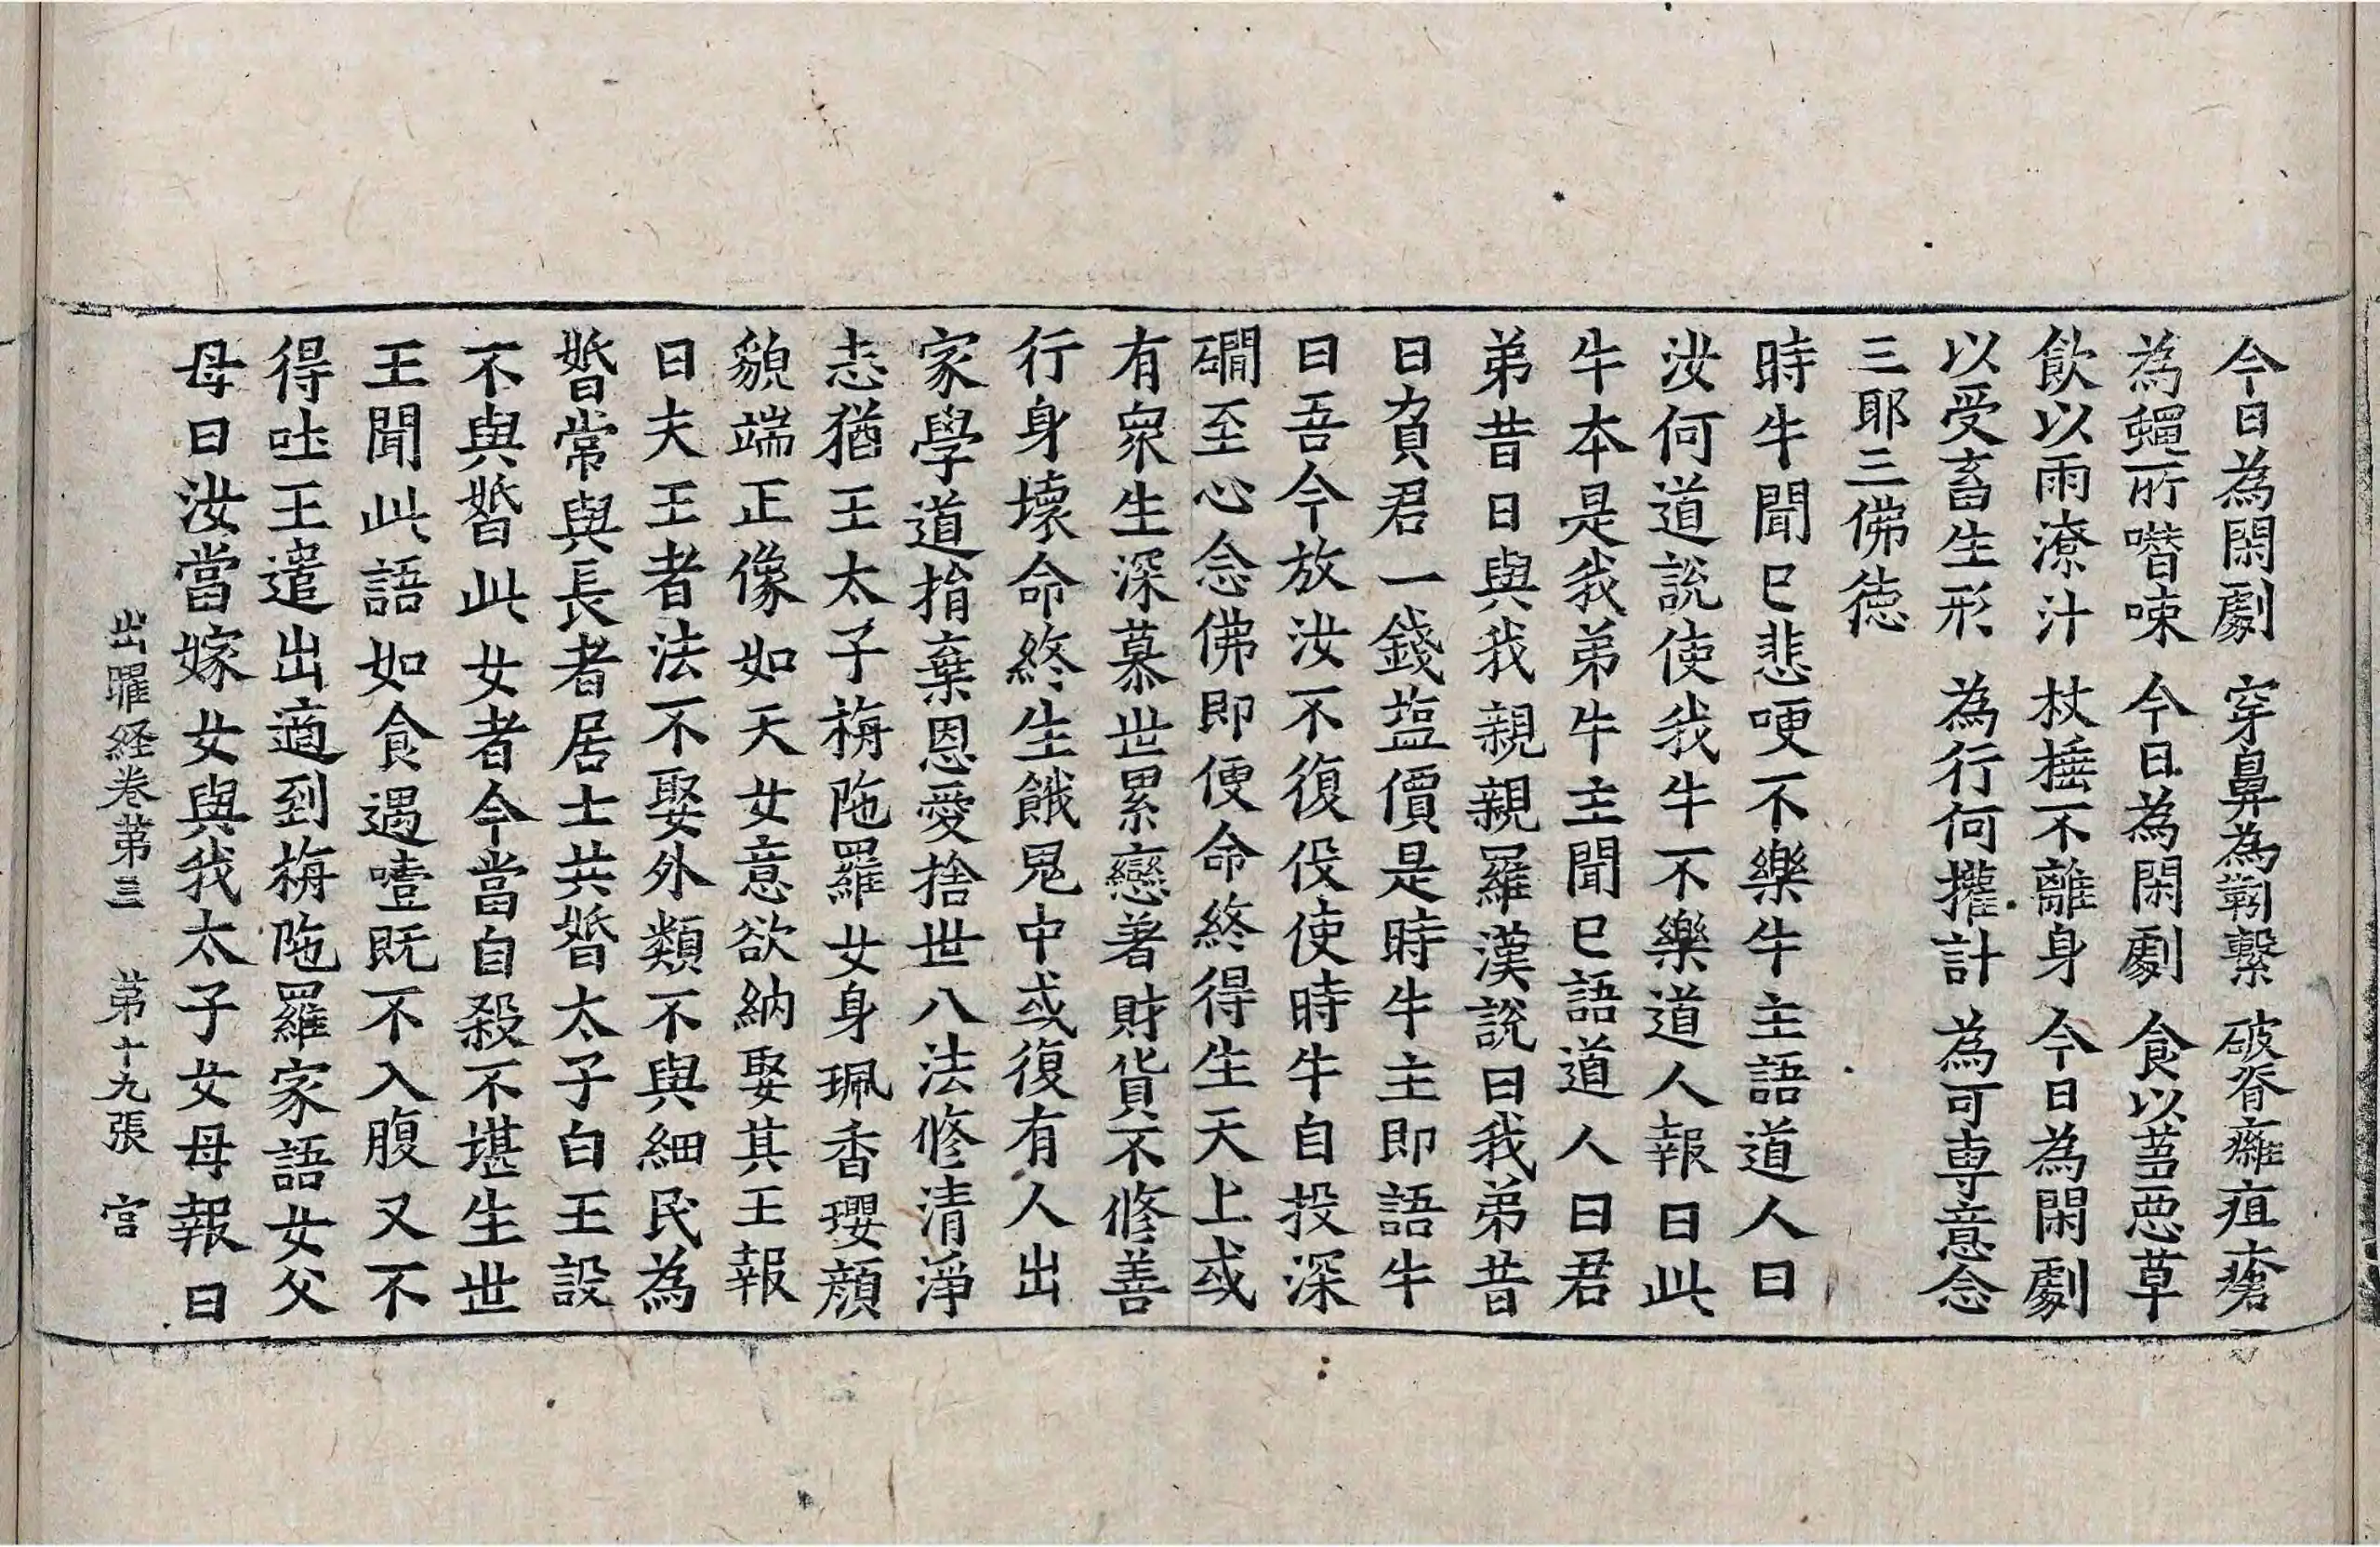 今日為閑劇　穿鼻為靷繫　破脊癰疽瘡
為蠅所噆唻　今日為閑劇　食以蒭惡草
飲以雨潦汁　杖捶不離身　今日為閑劇
以受畜生形　為行何攉計　為可專意念
三耶三佛德
時牛聞已悲哽不樂牛主語道人曰
汝何道說使我牛不樂道人報曰此
牛本是我弟牛主聞已語道人曰君
弟昔日與我親親羅漢說曰我弟昔
日負君一錢塩價是時牛主即語牛
曰吾今放汝不復役使時牛自投深
磵至心念佛即便命終得生天上或
有衆生深慕世累戀著財貨不修善
行身壞命終生餓鬼中或復有人出
家學道捐棄恩愛捨世八法修清淨
志猶王太子栴陁羅女身珮香瓔顏
貌端正像如天女意欲納娶其王報
曰夫王者法不娶外類不與細民為
婚常與長者居士共婚太子白王設
不與婚此女者今當自殺不堪生世
王聞此語如食遇噎既不入腹又不
得吐王遣出適到栴陁羅家語女父
母曰汝當嫁女與我太子女母報曰
出曜経卷第三　第十九張　宫